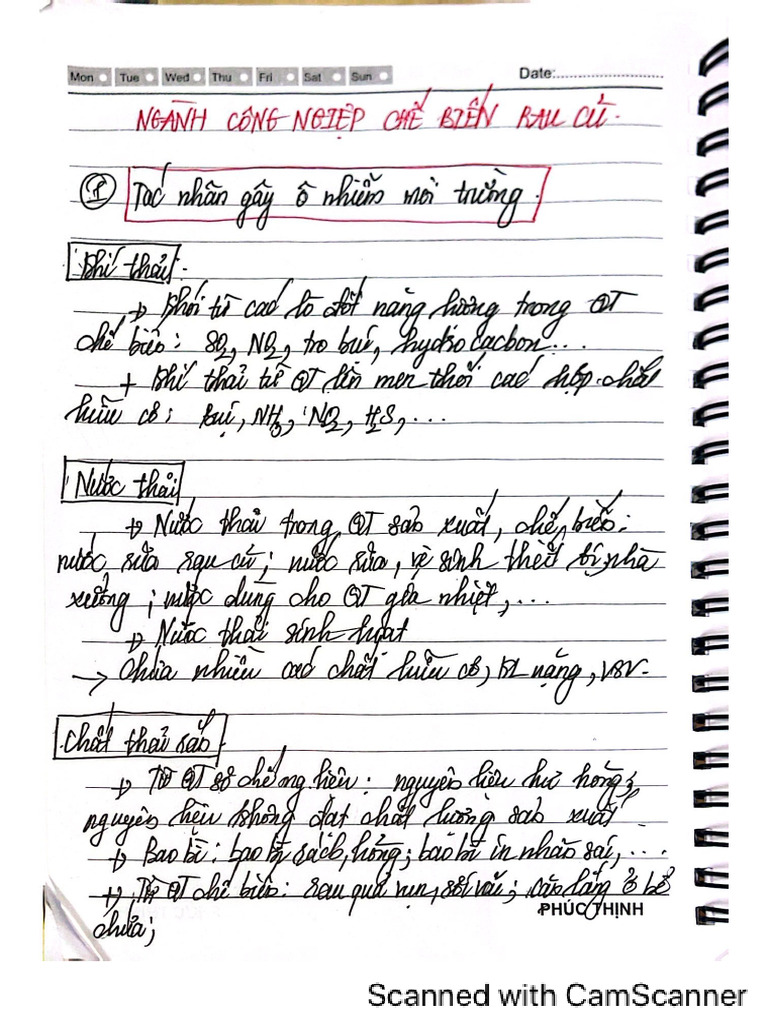 Mon Tue Wed Thu Fri Sat Sun Date:
NGÀNH CÔNG NGIỆP CHẾ BIẾN RAU CỦ.
① Tác nhân gây ô nhiễm môi trường.
Khí thải:
+ Khói từ các lò đốt năng lượng trong QT
chế biến: SO2, NO2, tro bụi, hydrocacbon...
+ Khí thải từ QT lên men thối các hợp chất
hữu cơ: Bụi, NH3, NO2, H2S, ...
Nước thải
+ Nước thải trong QT sản xuất, chế biến:
nước rửa rau củ; nước rửa, vệ sinh thiết bị, nhà
xưởng; nước dùng cho QT gia nhiệt, ...
+ Nước thải sinh hoạt
-> Chứa nhiều các chất hữu cơ, KL nặng, VSV.
Chất thải rắn
+ Từ QT sơ chế ng.liệu: nguyên liệu hư hỏng;
nguyên liệu không đạt chất lượng sản xuất
+ Bao bì: bao bì rách, hỏng; bao bì in nhãn sai, ...
+ Từ QT chế biến: rau quả vụn, rơi vãi; cặn lắng ở bể
PHÚC THỊNH
chứa;
Scanned with CamScanner